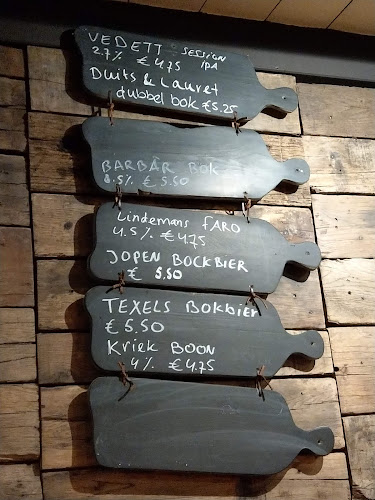 VEDETT SESSION IPA
2.7% €4.75
Duits & Lauret
dubbel bok €5.25
BARBÃR BOK
8.5% €5.50
Lindemans FARO
4.5% €4.75
JOPEN BOCKBIER
€ 5.50
TEXELS Bokbier
€5.50
Kriek BOON
4% €4.75